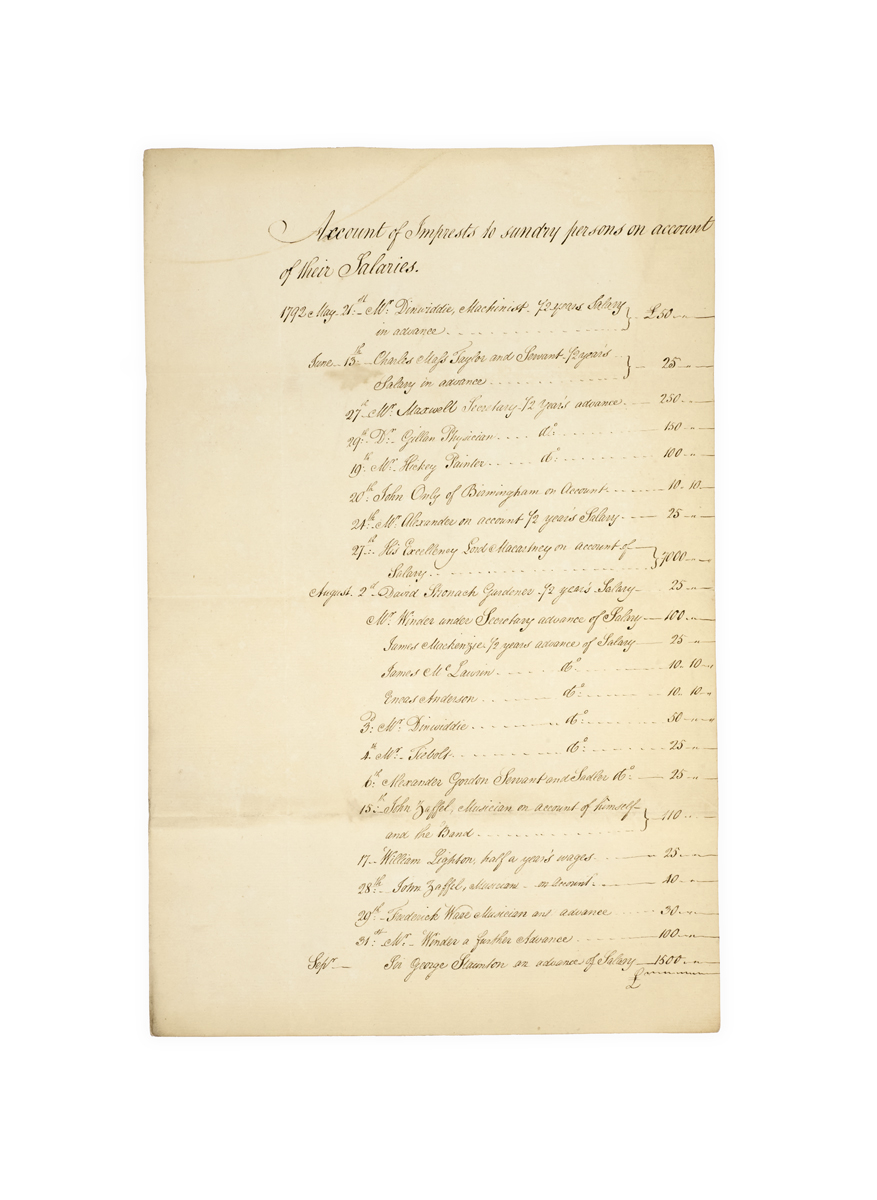 Account of Imprests to sundry persons on account
of their Salaries.
1792 May 21st Mr. Dinwiddie, Machinist. 1/2 years Salary
in advance } £50 „ „
June 13th Charles Mass Taylor and Servant 1/2 year's
Salary in advance } 25 „
27th Mr. Maxwell Secretary 1/2 Year's advance 250 „
29th Dr. Gillan Physician Do. 150 „
19th Mr. Hickey Painter Do. 100 „
20th John Only of Birmingham on Account 10 „ 10 „
24th Mr. Alexander on account 1/2 years Salary 25 „
27th His Excellency Lord Macartney on account of
Salary } 7000 „
August 2d David Stronach Gardener 1/2 year's Salary 25 „
Mr. Winder under Secretary advance of Salary 100 „
James Mackenzie 1/2 years advance of Salary 25 „
James McLawrin Do. 10 „ 10 „
Eneas Anderson Do. 10 „ 10 „
3d Mr. Dinwiddie Do. 50 „
4th Mr. Tiebolt Do. 25 „
6th Alexander Gordon Servant and Sadler Do. 25 „
15th John Zaffel, Musician on account of himself
and the Band } 110 „
17 William Lighton, half a year's wages 25 „
28th John Zaffel, Musician on Account 40 „
29th Frederick Wave Musician an advance 30 „
31st Mr. Winder a further Advance 100 „
Sepr. Sir George Staunton an advance of Salary 1500 „
£